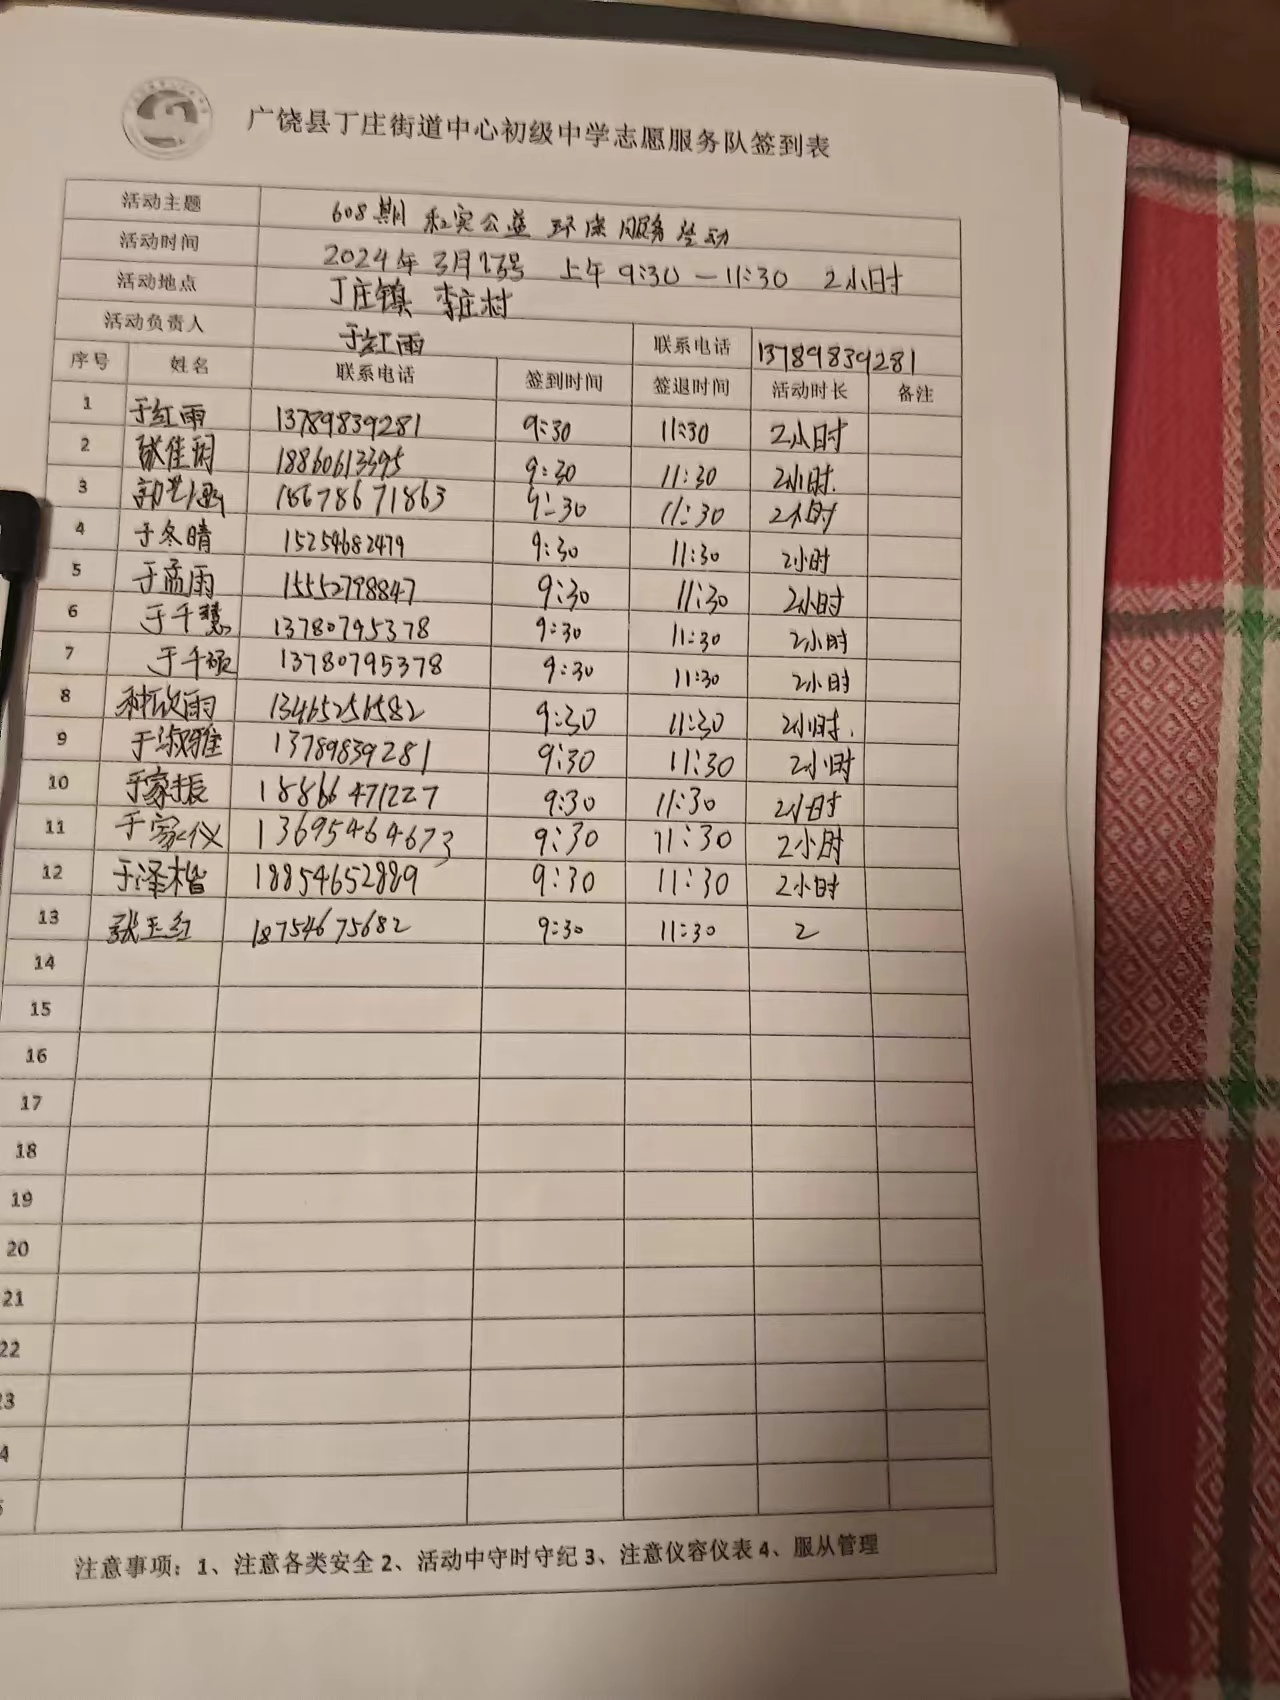 广饶县丁庄街道中心初级中学志愿服务队签到表
活动主题 608期 红实公益 环保服务活动
活动时间 2024年3月23号 上午9:30—11:30 2小时
活动地点 丁庄镇 李庄村
活动负责人 于红雨 联系电话 13789839281
序号 姓名 联系电话 签到时间 签退时间 活动时长 备注
1 于红雨 13789839281 9:30 11:30 2小时
2 张佳闰 18860613395 9:30 11:30 2小时.
3 18678671863 9:30 11:30 2小时
4 于冬晴 15254682479 9:30 11:30 2小时
5 于孟雨 15552798847 9:30 11:30 2小时
6 于千慧 13780795378 9:30 11:30 2小时
7 于千硕 13780795378 9:30 11:30 2小时
8 种欣雨 13465251582 9:30 11:30 2小时.
9 于淑雅 13789839281 9:30 11:30 2小时
10 于家振 18866471227 9:30 11:30 2小时
11 于家仪 13695464673 9:30 11:30 2小时
12 于泽楷 18854652889 9:30 11:30 2小时
13 张玉红 18754675682 9:30 11:30 2
14
15
16
17
18
19
20
21
22
23
4
注意事项：1、注意各类安全 2、活动中守时守纪 3、注意仪容仪表 4、服从管理